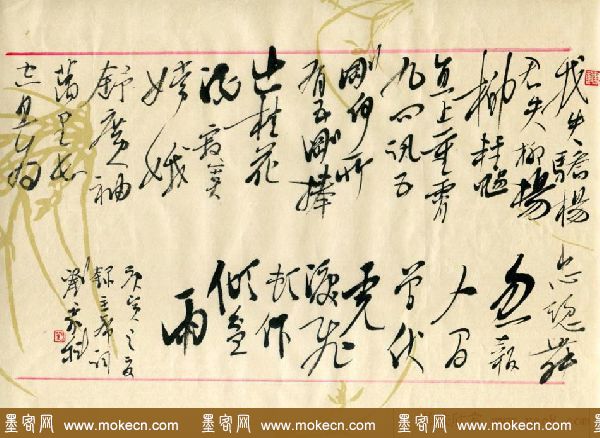 我失驕楊
君失柳楊
柳輕颺
直上重霄
九问訊吴
剛何所
有吴剛捧
出桂花
酒寂寞
嫦娥
舒廣袖
萬里长
空且为
忠魂舞
忽報
人间
曾伏
虎
淚飛
頓作
傾盆
雨
庚寅之夏
録主席詞
墨客网 www.mokecn.com 墨客网 www.mokecn.com 墨客网 www.mokecn.com